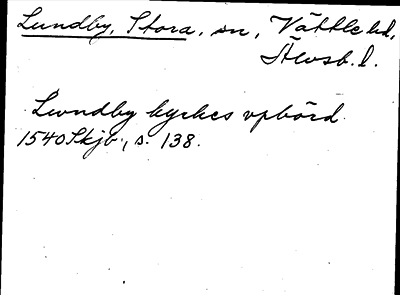 Lundby, Stora, sn, Vättle hd,
Älvsb. l.
Lwndby kyrkes vpbörd
1540 Skjb., s. 138.